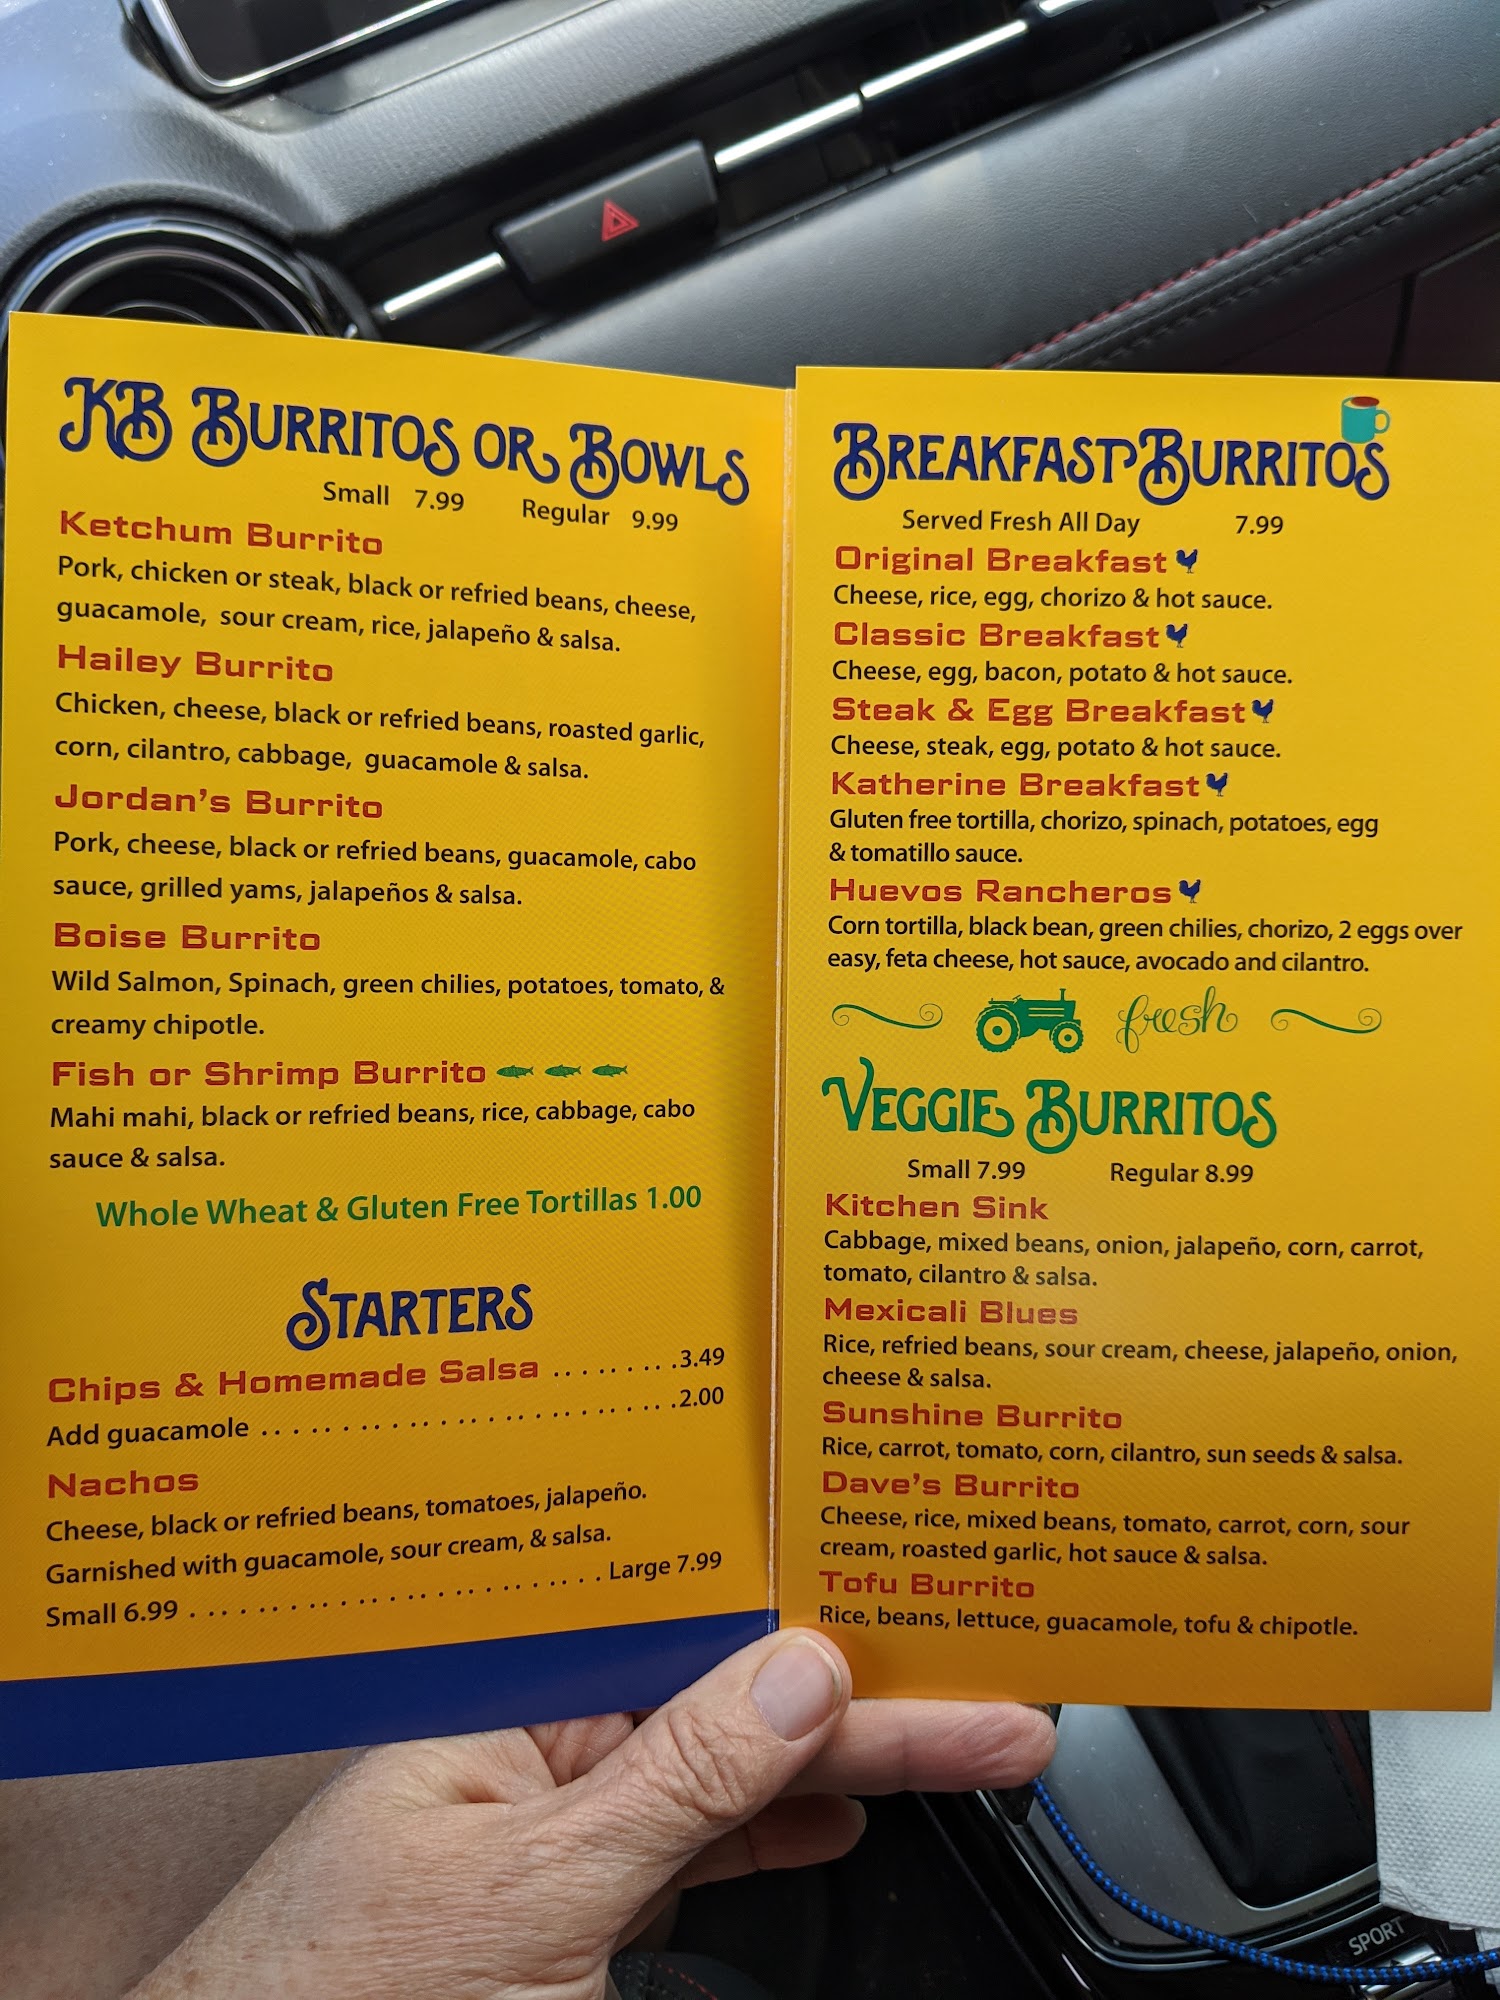 KB Burritos or Bowls
Small 7.99 Regular 9.99
Ketchum Burrito
Pork, chicken or steak, black or refried beans, cheese,
guacamole, sour cream, rice, jalapeño & salsa.
Hailey Burrito
Chicken, cheese, black or refried beans, roasted garlic,
corn, cilantro, cabbage, guacamole & salsa.
Jordan's Burrito
Pork, cheese, black or refried beans, guacamole, cabo
sauce, grilled yams, jalapeños & salsa.
Boise Burrito
Wild Salmon, Spinach, green chilies, potatoes, tomato, &
creamy chipotle.
Fish or Shrimp Burrito
Mahi mahi, black or refried beans, rice, cabbage, cabo
sauce & salsa.
Whole Wheat & Gluten Free Tortillas 1.00
Starters
Chips & Homemade Salsa ........3.49
Add guacamole ........................2.00
Nachos
Cheese, black or refried beans, tomatoes, jalapeño.
Garnished with guacamole, sour cream, & salsa.
Small 6.99 ........................ Large 7.99
Breakfast Burritos
Served Fresh All Day 7.99
Original Breakfast
Cheese, rice, egg, chorizo & hot sauce.
Classic Breakfast
Cheese, egg, bacon, potato & hot sauce.
Steak & Egg Breakfast
Cheese, steak, egg, potato & hot sauce.
Katherine Breakfast
Gluten free tortilla, chorizo, spinach, potatoes, egg
& tomatillo sauce.
Huevos Rancheros
Corn tortilla, black bean, green chilies, chorizo, 2 eggs over
easy, feta cheese, hot sauce, avocado and cilantro.
fresh
Veggie Burritos
Small 7.99 Regular 8.99
Kitchen Sink
Cabbage, mixed beans, onion, jalapeño, corn, carrot,
tomato, cilantro & salsa.
Mexicali Blues
Rice, refried beans, sour cream, cheese, jalapeño, onion,
cheese & salsa.
Sunshine Burrito
Rice, carrot, tomato, corn, cilantro, sun seeds & salsa.
Dave's Burrito
Cheese, rice, mixed beans, tomato, carrot, corn, sour
cream, roasted garlic, hot sauce & salsa.
Tofu Burrito
Rice, beans, lettuce, guacamole, tofu & chipotle.
SPORT